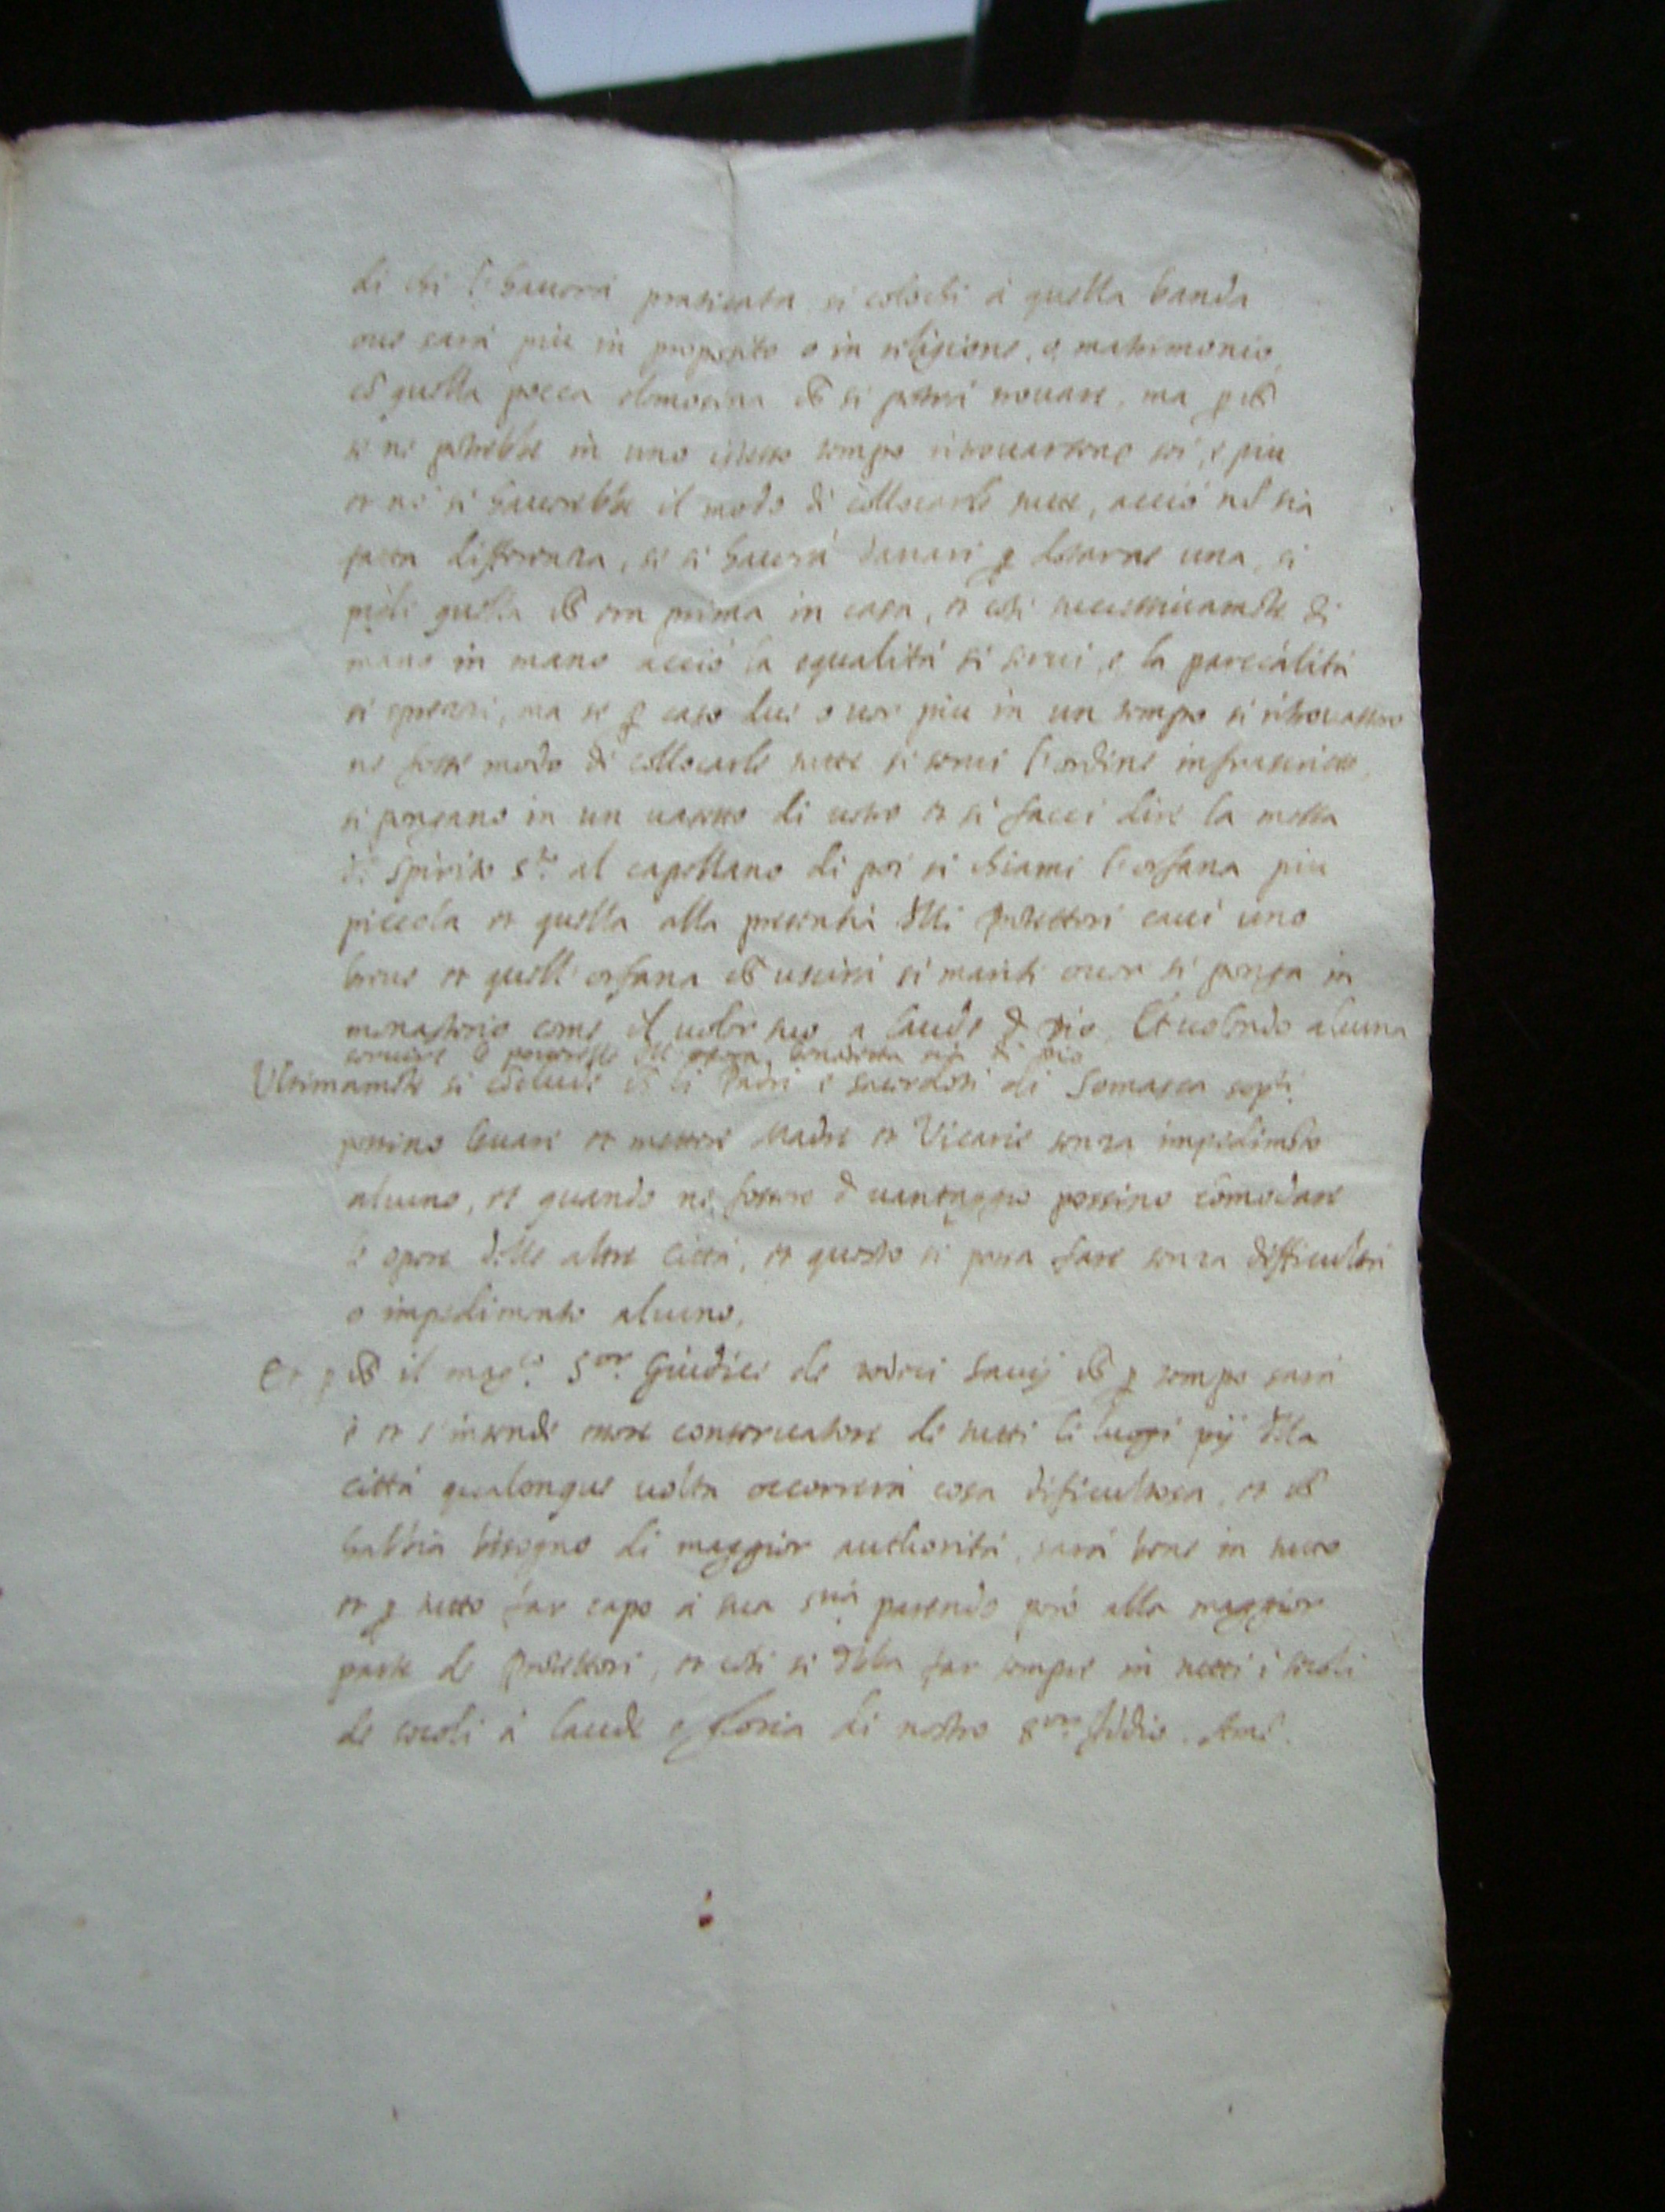 di chi l'hauerà praticata si colochi à quella banda
oue sarà piu in proposito o in religione, o matrimonio,
cõ quella pocca elemosina chê si potrà trouare, ma p chê
se ne potrebbe in uno istesso tempo ritrouarsene sei, e piu
et nõ si hauerebbe il modo di collocarle tutte, acciò nõ sia
fatta differenza, se si hauerà danari p dotarne una, si
pigli quella chê era prima in casa, et cosi successiuamẽte di
mano in mano acciò la equalità si serui, e la parcialità
si sprezzi, ma se p caso due o uer piu in un tempo si ritrouassero
ne fosse modo di collocarle tutte si serui l'ordine infrascritto,
si pongano in un uasetto di uetro et si facci dire la messa
di Spirito S.to al capellano di poi si chiami l'orfana piu
piccola et quella alla presentia delli Protettori caui uno
breue et quell'orfana chê uscirà si mariti ouer si ponga in
monasterio come il uoler suo a laude di Dio, Et uolendo alcuna
seruire le pouerelle dell'opera, benedetta sia di Dio
Ultimamẽte si cõclude chê li Padri e sacerdoti di Somasca sop.ti
possino leuare et mettere Madre et Vicarie senza impedimẽto
alcuno, et quando ne fossero d'uantaggio possino cõmodare
le opere delle altre città, et questo si possa fare senza difficultà
o impedimento alcuno.
Et p chê il mag.co S.or Giudice de dodeci Sauij chê p tempo sarà
è et s'intende essere conseruatore de tutti li luoghi pij della
città qualonque uolta occorrerà cosa dificultosa, et chê
habbia bisogno di maggior authorità, sarà bene in tutto
et p tutto far capo à sua S.ria parendo però alla maggior
parte de Protettori, et cosi si debba far sempre in tutti i secoli
de secoli à laude e gloria di nostro S.ore Iddio. Amẽ.